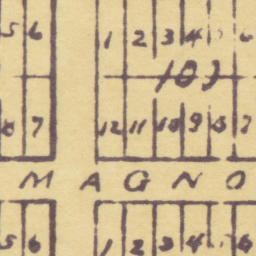 5 6 1 2 3 4 6
103
8 7 12 11 10 9 8 7
MAGNO
5 6 1 2 3 4 6